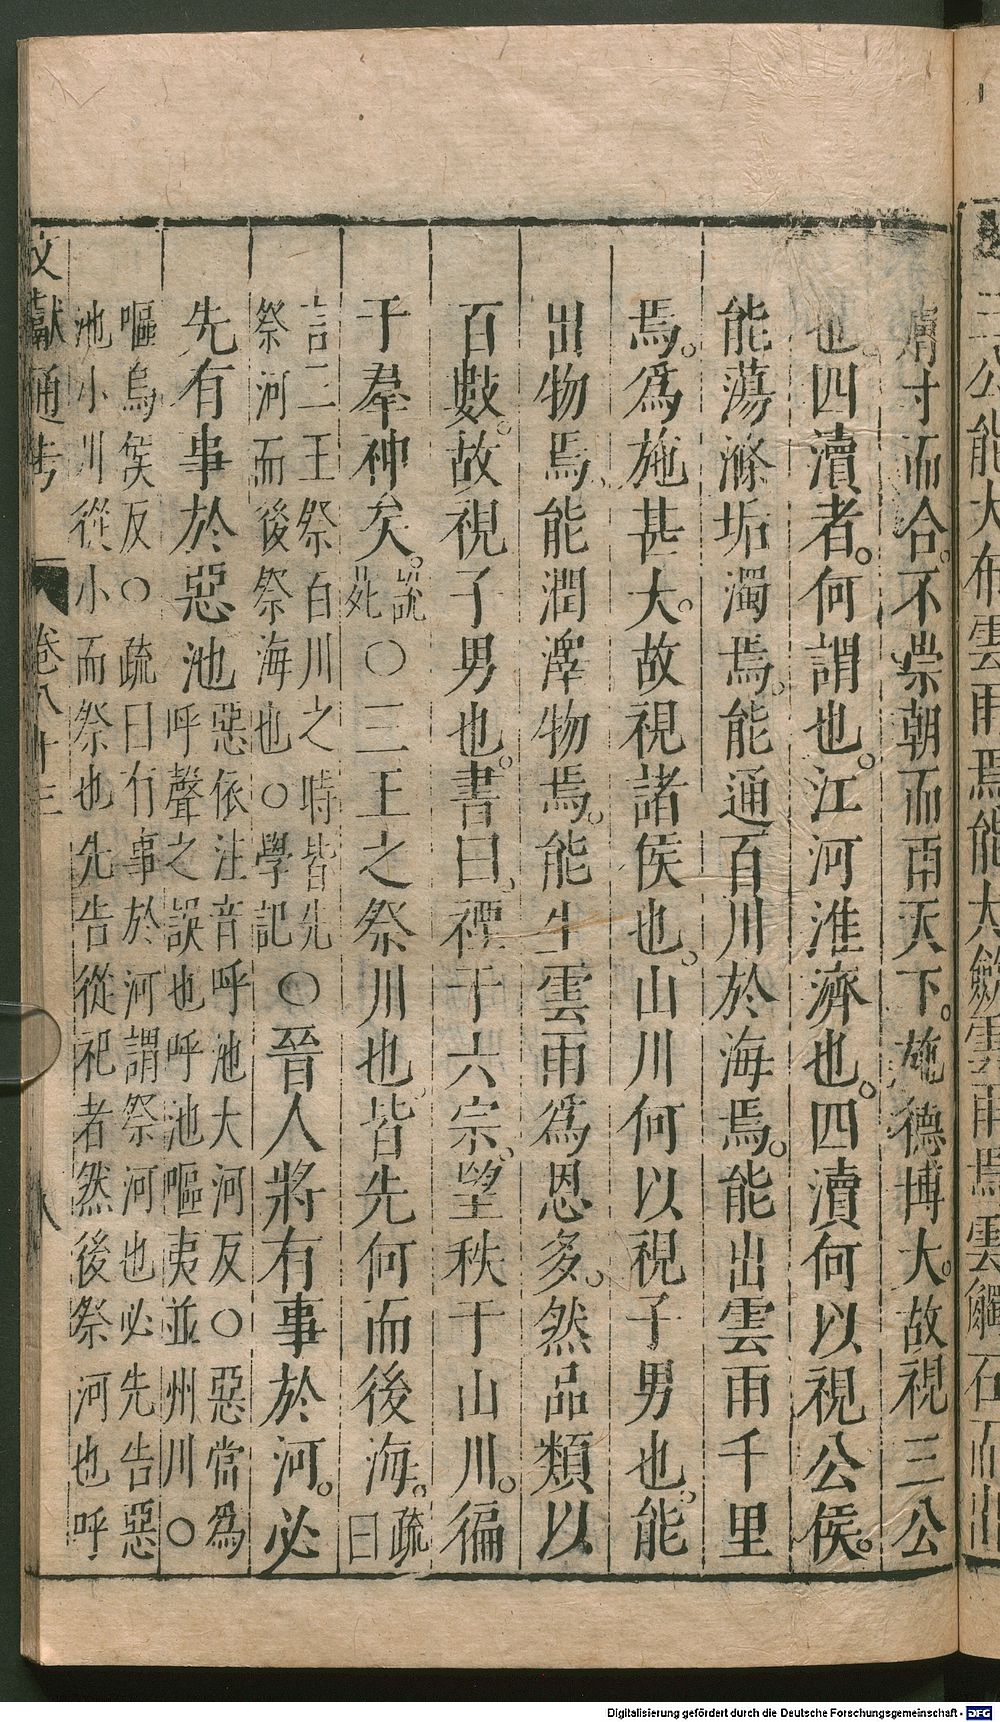 膚寸而合。不崇朝而雨天下。施德博大。故視三公
也。四瀆者。何謂也。江河淮濟也。四瀆何以視公侯。
能蕩滌垢濁焉。能通百川於海焉。能出雲雨千里
焉。爲施甚大。故視諸侯也。山川何以視子男也。能
出物焉、能潤澤物焉。能生雲雨爲恩多。然品類以
百數。故視子男也。書曰。禋于六宗。望秩于山川。徧
于羣神矣。
說
苑
○三王之祭川也。皆先何而後海。
疏
曰
言三王祭百川之時皆先
祭河而後祭海也○學記
○晉人將有事於河。必
先有事於惡池
惡依注音呼池大河反○惡當爲
呼聲之誤也呼池嘔夷並州川○
嘔烏侯反○疏曰有事於河謂祭河也必先告惡
池小川從小而祭也先告從祀者然後祭河也呼
文獻通考 卷八十三 八
三公能大布雲雨焉能大斂雲雨焉雲觸石而出
Digitalisierung gefördert durch die Deutsche Forschungsgemeinschaft - DFG